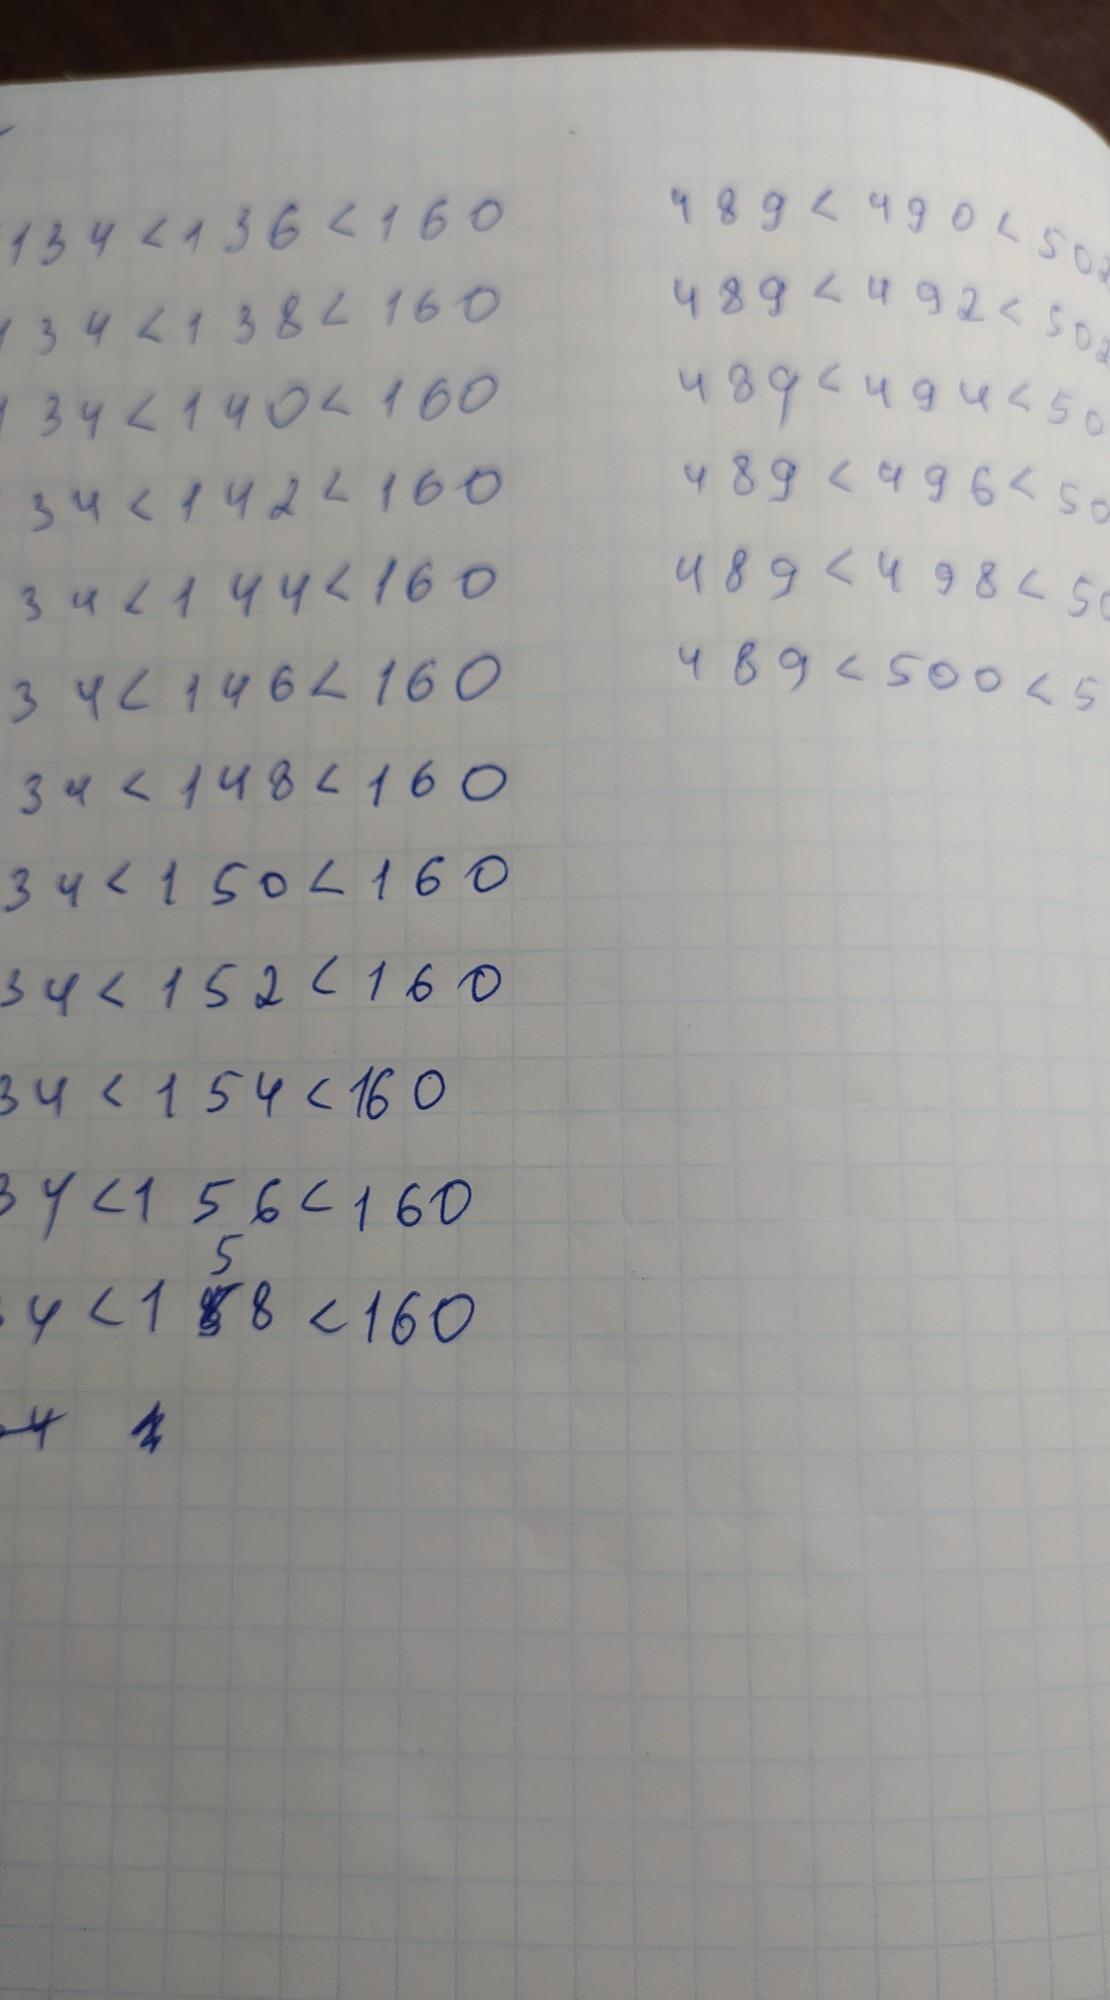 134 < 136 < 160
134 < 138 < 160
134 < 140 < 160
34 < 142 < 160
34 < 144 < 160
34 < 146 < 160
34 < 148 < 160
34 < 150 < 160
34 < 152 < 160
34 < 154 < 160
34 < 156 < 160
5
4 < 158 < 160
4
489 < 490 < 502
489 < 492 < 502
489 < 494 < 50
489 < 496 < 50
489 < 498 < 50
489 < 500 < 5